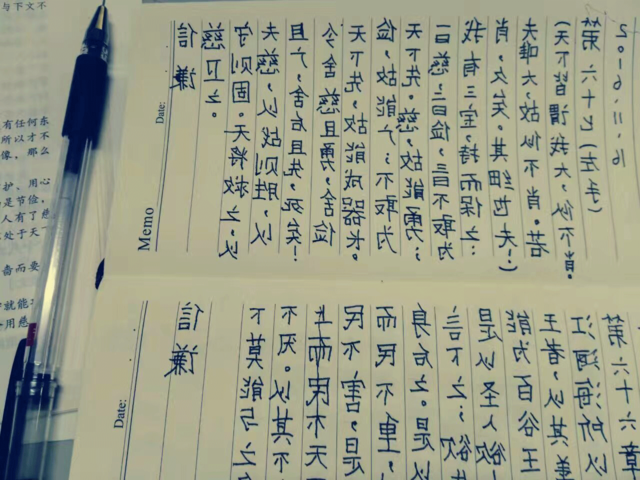 2016.11.16
第六十七(左手)
(天下皆谓我大,似不肖。
夫唯大,故似不肖。若
肖,久矣。其细也夫!)
我有三宝,持而保之:
一曰慈,二曰俭,三曰不敢为
天下先。慈,故能勇;
俭,故能广;不敢为
天下先,故能成器长。
今舍慈且勇,舍俭
且广,舍后且先,死矣!
夫慈,以战则胜,以
守则固。天将救之,以
慈卫之。
信谦
Memo
Date:
第六十六章
江河海所以
王者,以其善
能为百谷王
是以圣人欲
言下之;欲
身后之。是以
而民不重,
民不害,是
上而民不天
不厌。以其不
下莫能与之
信谦
Date:
与下文不
有任何东
所以才不
像,那么
护、用心
是节俭,
人有了慈
处于天
啬而要
就能
用慈